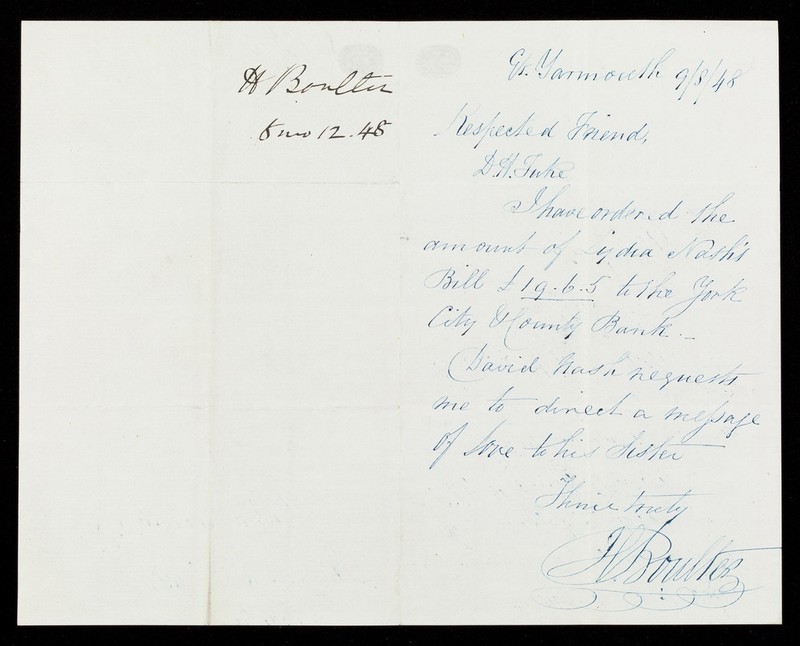 H Boulter
8 mo 12. 48
Gt. Yarmouth 9/8/48
Respected Friend,
D. H. Tuke
I have ordered the
amount of Lydia Nash's
Bill £ 19. 6. 5 to the York
City & County Bank. _
David Nash requests
me to direct a message
of love to his Sister
Thine truly
H. Boulter